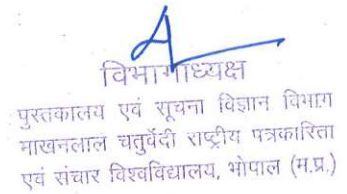 विभागाध्यक्ष
पुस्तकालय एवं सूचना विज्ञान विभाग
माखनलाल चतुर्वेदी राष्ट्रीय पत्रकारिता
एवं संचार विश्वविद्यालय, भोपाल (म.प्र.)